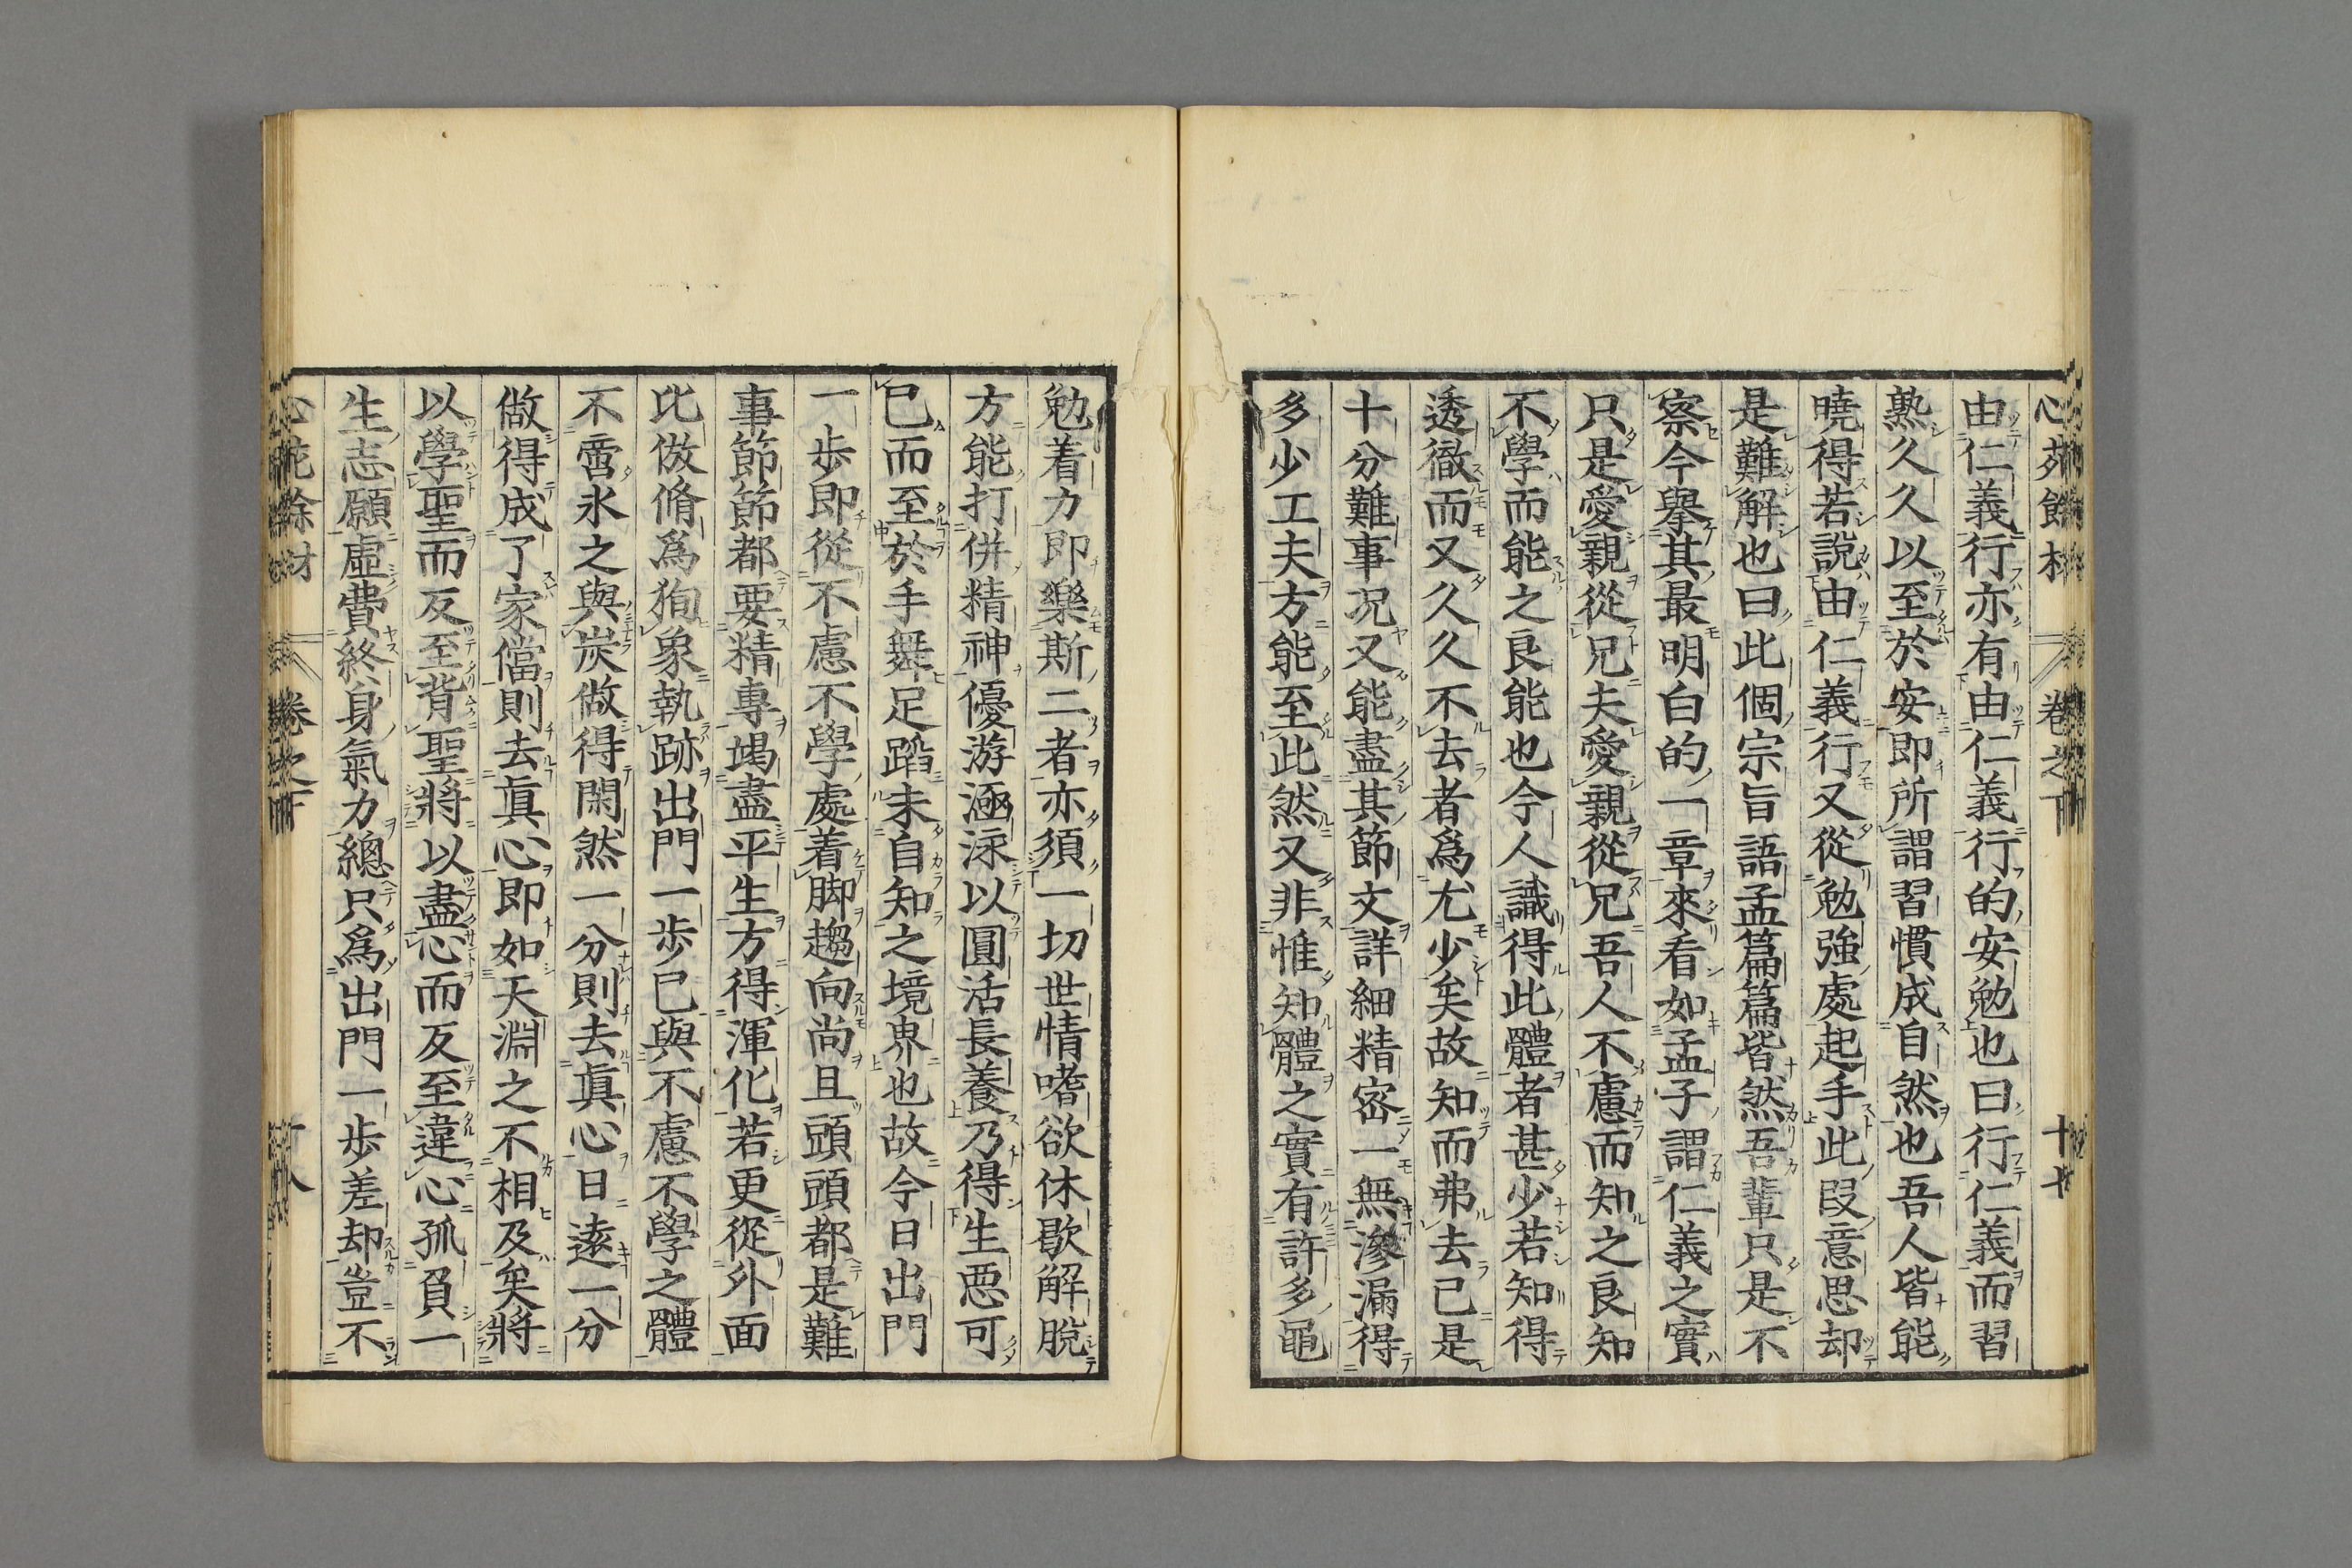 心苑餘材 卷之下 十七
由仁義行亦有由仁義行的安勉也曰行仁義而習
熟久久以至於安即所謂習慣成自然也吾人皆能
曉得若說由仁義行又從勉強處起手此段意思却
是難解也曰此個宗旨語孟篇篇皆然吾輩只是不
察今擧其最明白的一章來看如孟子謂仁義之實
只是愛親從兄夫愛親從兄吾人不慮而知之良知
不學而能之良能也今人識得此體者甚少若知得
透徹而又久久不去者爲尤少矣故知而弗去已是
十分難事况又能盡其節文詳細精密一無滲漏得
多少工夫方能至此然又非惟知體之實有許多黽
勉着力即樂斯二者亦須一切世情嗜欲休歇解脫
方能打併精神優游涵泳以圓活長養乃得生惡可
已而至於手舞足蹈未自知之境界也故今日出門
一歩即從不慮不學處着脚趨向尚且頭頭都是難
事節節都要精專竭盡平生方得渾化若更從外面
比倣脩爲狥象執跡出門一歩已與不慮不學之體
不啻氷之與炭做得閑然一分則去眞心日遠一分
做得成了家儅則去眞心即如天淵之不相及矣將
以學聖而反至背聖將以盡心而反至違心孤負一
生志願虛費終身氣力總只爲出門一歩差却豈不
心苑餘材 卷之下 十八